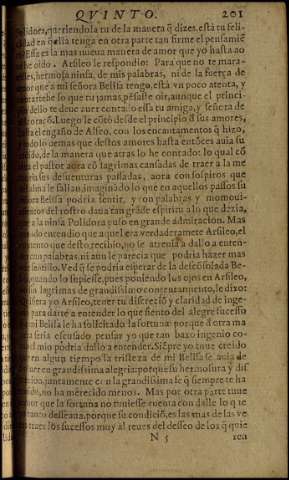 QVINTO. 201
Polidora, queriendola tu de la manera q̃ dizes. està tu feli
cidad en q̃ ella tenga en otra parte tan firme el pensamiẽ
Essa es la mas nueva manera de amor que yo hasta ao
he oido. Arsileo le respondio: Para que no te mara
hermosa ninfa, de mis palabras, ni de la fuerça de
amor que a mi señora Belisa tengo, està vn poco atenta, y
lo que tu jamas pẽsaste oir, aunque el princi
dello te deue auer contado essa tu amiga, y señora de
Luego le cõtò desde el principio de sus amores,
hasta el engaño de Alfeo, con los encantamentos q̃ hizo,
y todo lo demas que destos amores hasta entõces auia su
cedido, de la manera que atras lo he contado: lo qual cõ
aua el pastor aora cõ lagrimas causadas de traer a la me
desuenturas passadas, aora con sospiros que
del alma le salian, imaginãdo lo que en aquellos passos su
señora Belisa podria sentir, y con palabras y mouimi
entos del rostro daua tan grãde espiritu a lo que dezia,
a la ninfa Polidora puso en grande admiracion. Mas
quando entendio que aquel era verdaderamẽte Arsileo, el
contento que desto recibio, no se atreuia a dallo a enten
con palabras, ni aun le parecia que podria hazer mas
Ved q̃ se podria esperar de la descõsolada Be
quando lo supiesse, pues poniendo los ojos en Arsileo,
lagrimas de grandissimo contentamiento, le dixo:
Quisiera yo Arsileo, tener tu discreciõ y claridad de inge
para darte a entender lo que siento del alegre sucesso
mi Belisa le ha solicitado la fortuna: porque d̃ otra ma
nera seria escusado pensar yo que tan baxo ingenio co
mo el mio podria dallo a entender. Siẽpre yo tuue creido
en algun tiempo la tristeza de mi Belisa se auia de
en grandissima alegria: porque su hermosura y dis
juntamente cõ la grandissima fe q̃ siempre te ha
no ha merecido menos. Mas por otra parte tuue
que la fortuna no tuuiesse cuenta con dalle lo q̃ te
tanto desseaua, porque su condiciõ es las mas de las ve
traer los sucessos muy al reues del desseo de los q̃ quie
N 5 ren